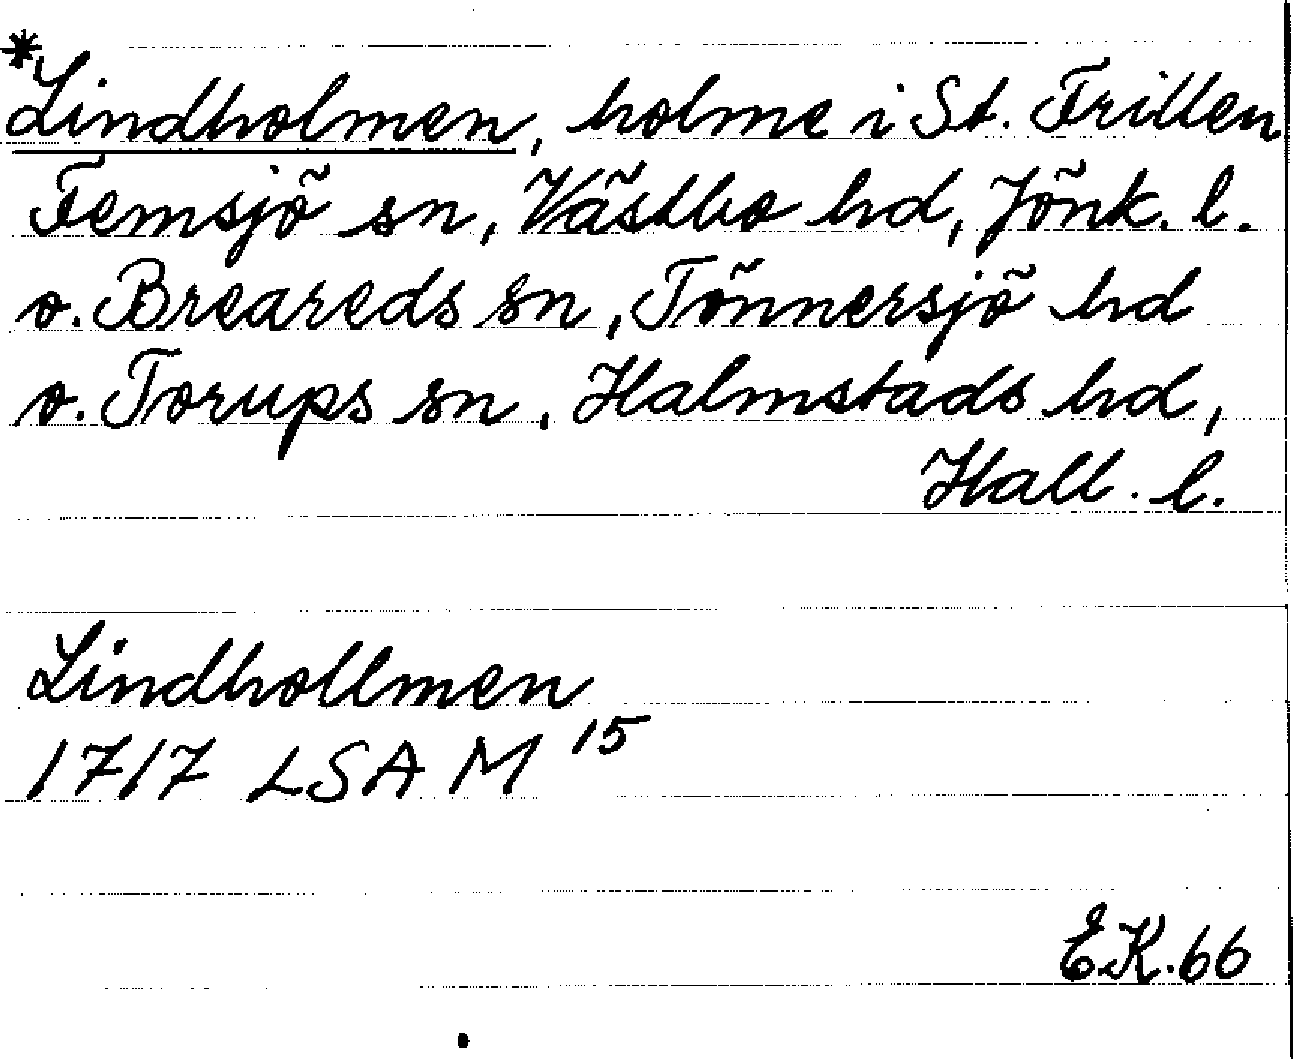 *Lindholmen, holme i St. Frillen
Femsjö sn, Västbo hd, Jönk. l.
o. Breareds sn, Tönnersjö hd
o. Torups sn, Halmstads hd,
Hall. l.
Lindhollmen
1717 LSA M 15
E.K. 66